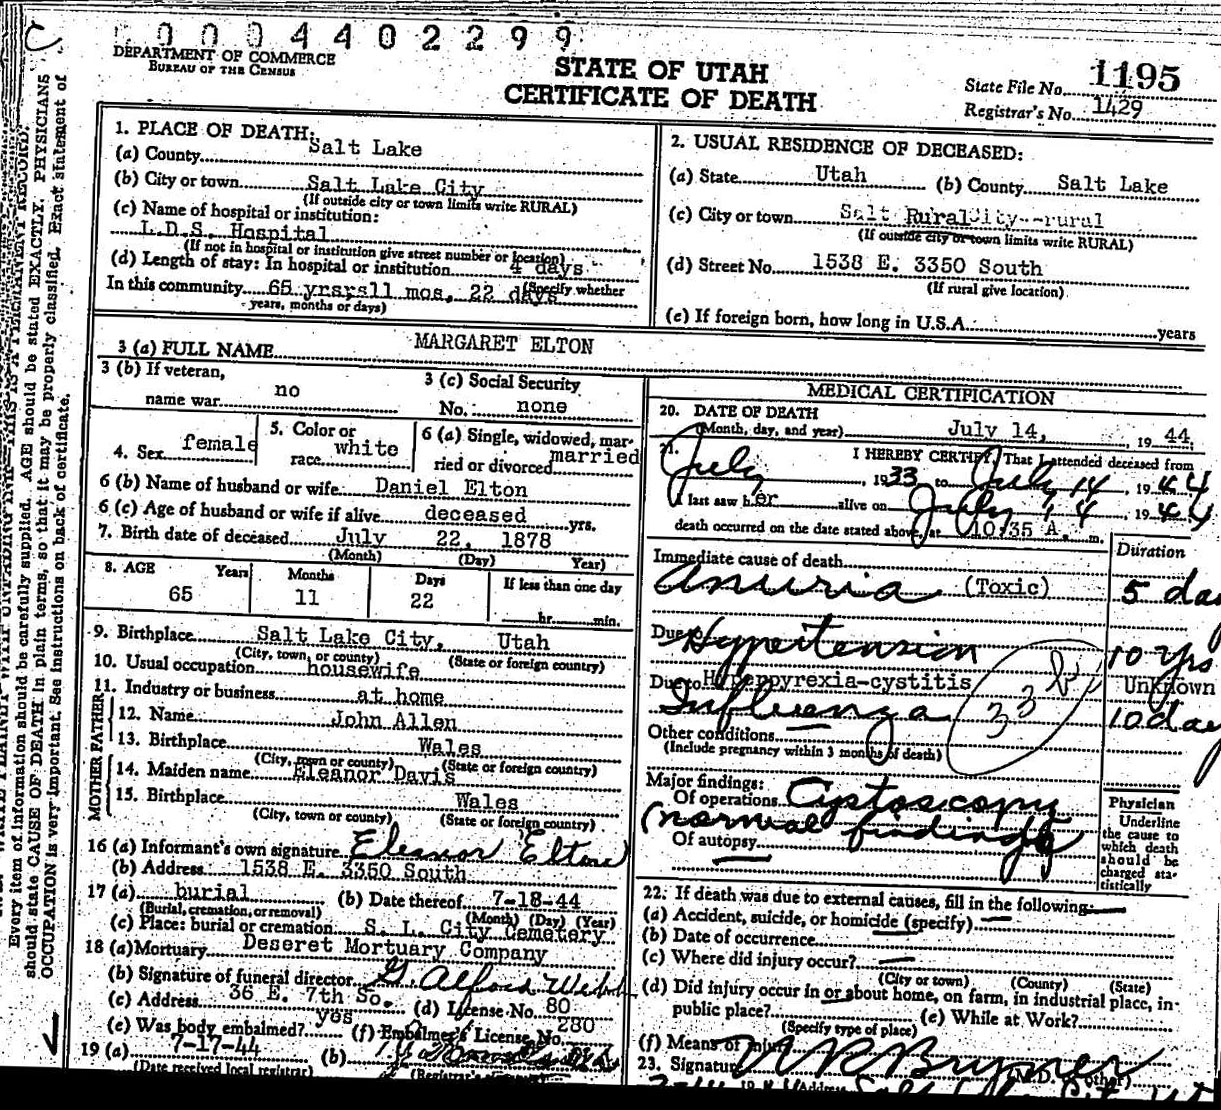 0 0 0 4 4 0 2 2 9 9
DEPARTMENT OF COMMERCE
BUREAU OF THE CENSUS
STATE OF UTAH
CERTIFICATE OF DEATH
State File No. 1195
Registrar's No. 1429
Every item of information should be carefully supplied. AGE should be stated EXACTLY. PHYSICIANS
should state CAUSE OF DEATH in plain terms, so that it may be properly classified. Exact statement of
OCCUPATION is very important. See instructions on back of certificate.
1. PLACE OF DEATH:
(a) County Salt Lake
(b) City or town Salt Lake City
(If outside city or town limits write RURAL)
(c) Name of hospital or institution:
L.D.S. Hospital
(If not in hospital or institution give street number or location)
(d) Length of stay: In hospital or institution 4 days
In this community 65 yrs, 11 mos, 22 days (Specify whether
years, months or days)
2. USUAL RESIDENCE OF DECEASED:
(a) State Utah (b) County Salt Lake
(c) City or town Salt Rural City--rural
(If outside city or town limits write RURAL)
(d) Street No. 1538 E. 3350 South
(If rural give location)
(e) If foreign born, how long in U.S.A. years
3 (a) FULL NAME MARGARET ELTON
3 (b) If veteran,
name war no
3 (c) Social Security
No. none
4. Sex female
5. Color or
race white
6 (a) Single, widowed, mar-
ried or divorced married
6 (b) Name of husband or wife Daniel Elton
6 (c) Age of husband or wife if alive deceased yrs.
7. Birth date of deceased July 22, 1878
(Month) (Day) Year)
8. AGE Years Months Days If less than one day
65 11 22 hr. min.
9. Birthplace Salt Lake City, Utah
(City, town, or county) (State or foreign country)
10. Usual occupation housewife
11. Industry or business at home
FATHER
12. Name John Allen
13. Birthplace Wales
(City, town or county) (State or foreign country)
MOTHER
14. Maiden name Eleanor Davis
15. Birthplace Wales
(City, town or county) (State or foreign country)
16 (a) Informant's own signature Eleanor Elton
(b) Address 1538 E. 3350 South
17 (a) burial (b) Date thereof 7-18-44
(Burial, cremation, or removal) (Month) (Day) (Year)
(c) Place: burial or cremation S. L. City Cemetery
18 (a) Mortuary Deseret Mortuary Company
(b) Signature of funeral director G. Alford Webb
(c) Address 36 E. 7th So. (d) License No. 80
(e) Was body embalmed? yes (f) Embalmer's License No. 280
19 (a) 7-17-44 (b)
(Date received local registrar) (Registrar's
MEDICAL CERTIFICATION
20. DATE OF DEATH
(Month, day, and year) July 14, 19 44
21. I HEREBY CERTIFY, That I attended deceased from
July, 1933 to July 14, 1944
I last saw her alive on July 14, 1944
death occurred on the date stated above, at 10:35 A. m.
Immediate cause of death Duration
Anuria (Toxic) 5 day
Due to Hypertension 10 yrs.
Due to Hyperpyrexia-cystitis Unknown
Influenza 10 day
33
Other conditions
(Include pregnancy within 3 months of death)
Major findings:
Of operations Cystoscopy
(normal findings)
Of autopsy
Physician
Underline
the cause to
which death
should be
charged sta-
tistically
22. If death was due to external causes, fill in the following:
(a) Accident, suicide, or homicide (specify)
(b) Date of occurrence
(c) Where did injury occur?
(City or town) (County) (State)
(d) Did injury occur in or about home, on farm, in industrial place, in-
public place? (e) While at Work?
(Specify type of place)
(f) Means of injury
23. Signature (M.D. or other)
Address